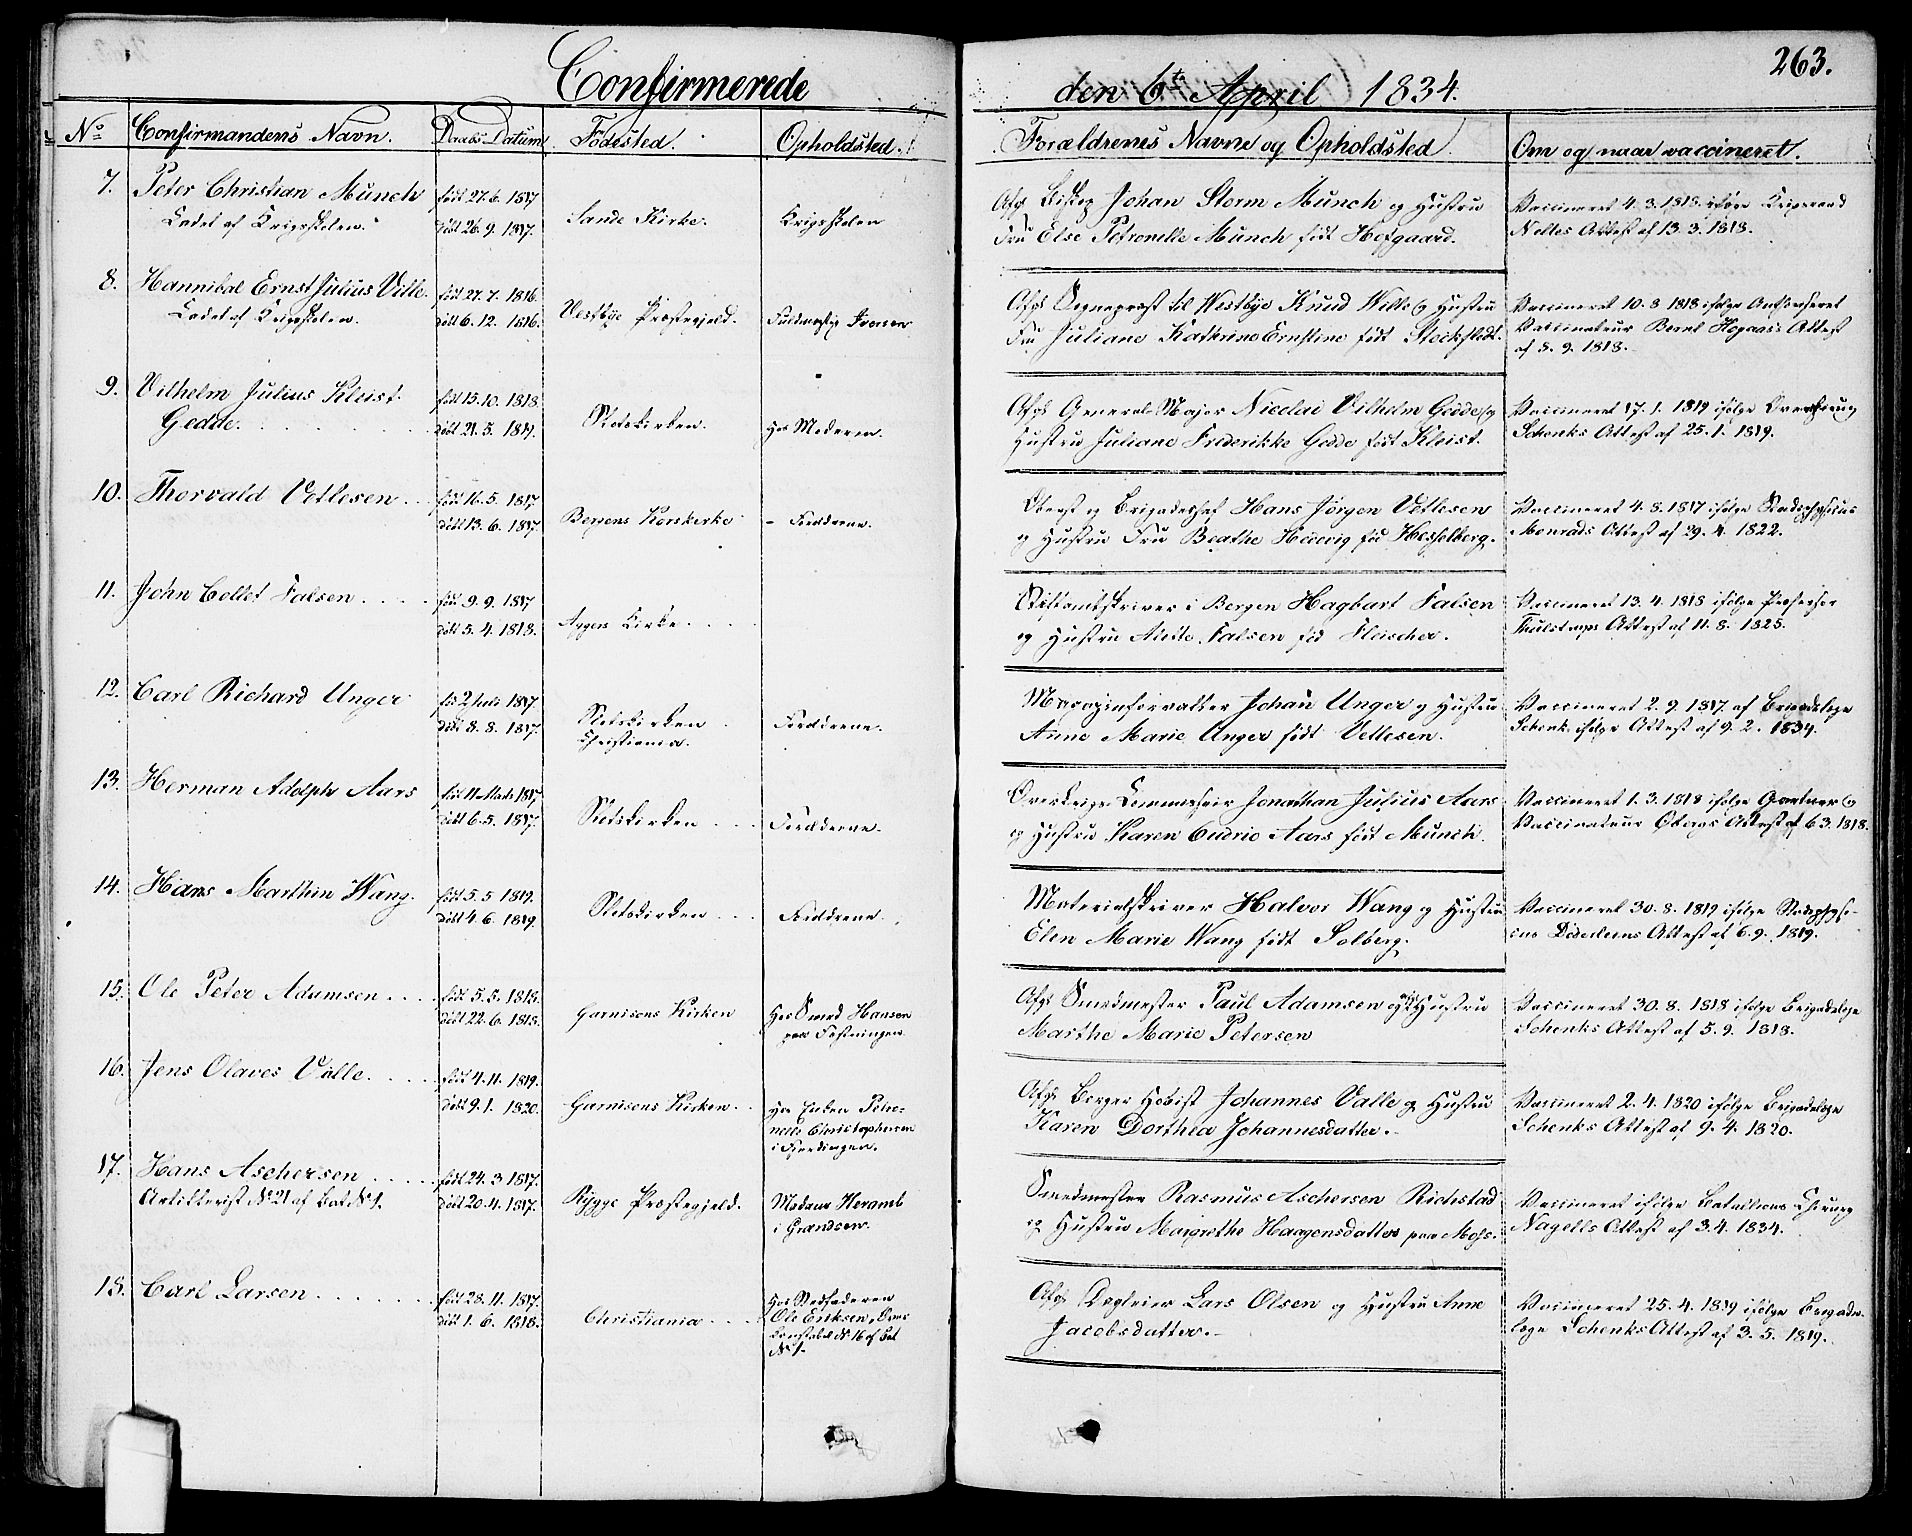 263.
Confirmerede den 6te April 1834.
No Confirmandens Navn. Daabs Datum Födested. Opholdsted. Forældrenes Navne og Opholdsted. Om og naar vaccineret.
7. Peter Christian Munch født 27.6. 1817 Afg. Biskop Johan Storm Munch og Hustru Vaccineret 4.3.1818 ifølge
Cadet af Krigsskolen. døbt 26.9. 1817. Sande Kirke. Krigsskolen Fru Else Petronelle Munch født Hofgaard. Attest af 13.3.1818.
8. Hannibal Ernst Julius Ville. født 27.7. 1816. Afg. Sogneprest til Westbye Knud Wille og Hustru Vaccineret 10.8 1818 ifølge Authoriseret
Cadet af Krigsskolen. døbt 6.12. 1816. Vestbye Præstegjeld. Fuldmægtig Iversen Fru Juliane Kathrine Ernstine født Stockfledt. Vaccinateur Bernt Hogaas's Attest
af 8.9. 1818.
9. Vilhelm Julius Kleist født 15.10. 1818 Afg. General Major Nicolai Vilhelm Gedde og Vaccineret 17.1. 1819 ifølge
Gedde. døbt 21.5. 1819. Slotskirken. Hos Moderen. Hustru Juliane Frederikke Gedde født Kleist. Schenks Attest af 25.1. 1819.
10. Thorvald Vetlesen født 16.5. 1817. Oberst og Brigadechef Hans Jørgen Vetlesen Vaccineret 4.8. 1817 ifølge Stadsphysicus
døbt 13.6. 1817. Bergens Korskirke - Forældrene. og Hustru Fru Beathe Hedevig fød Hesselberg. Monrads Attest af 29.4. 1822.
11. John Collet Falsen fød 9.9. 1817 Stiftamtskriver i Bergen Hagbart Falsen Vaccineret 13.4. 1818 ifølge Professor
døbt 5.4. 1818. Aggers Kirke. og Hustru Falsen fød Fleischer. Thulstrups Attest af 11.8. 1825.
12. Carl Richard Unger fød 2 Juli 1817. Magazinforvalter Johan Unger og Hustru Vaccineret 2.9. 1817 af Brigadelæge
døbt 8.8. 1817. Slotskirken Forældrene. Anne Marie Unger født Vetlesen. Schenk ifølge Attest af 9.2. 1834.
Christiania.
13. Herman Adolph Aars fød 11 Marts 1817 Overkrigs Commissair Jonathan Julius Aars Vaccineret 1.3. 1818 ifølge Gartner og
døbt 6.5. 1817. Slotskirken Forældrene. og Hustru Karen Cudrio Aars født Munch. Vaccinateur Øbergs Attest af 6 3. 1818.
14. Hans Marthin Wang. født 5.5 1819. Materialskriver Halvor Wang og Hustru Vaccineret 30.8. 1819 ifølge Stadsphysi-
døbt 4.6. 1819. Slotskirken Forældrene. Elen Marie Wang født Solberg. cus Attest af 6.9. 1819.
15. Ole Peter Adamsen født 5.5. 1818. Afg. Smedmester Paul Adamsen og Hustru Vaccineret 30.8. 1818 ifølge Brigadelæge
døbt 22.6. 1818. Garnisons Kirken Hos Smed Hansen Marthe Marie Petersen Schenks Attest af 5.9. 1818.
paa Fæstningen.
16. Jens Olaves Valle. født 4.11. 1819. Afg. Borger Johannes Valle og Hustru Vaccineret 2.4. 1820 ifølge Brigadelæge
døbt 9.1. 1820. Garnisons Kirken Hos Enken Petro- Karen Dorthea Johannesdatter. Schenks Attest af 9.4. 1820.
nelle Christophersen
i Fjerdingen.
17. Hans Aschersen født 24.3 1817. Smedmester Rasmus Aschersen Richstad Vaccineret ifølge Batallions Chirurg
Artillerist No 21 af Bat. No 1. døbt 20.4. 1817. Rygge Præstegjeld. Madame Heramb og Hustru Margrethe Haagensdatter paa Moss. Nagells Attest af 3.4. 1834.
i Grændsen.
18. Carl Larsen født 28.11. 1817. Hos Stedfaderen Afg. Dagleier Lars Olsen og Hustru Anne Vaccineret 25.4. 1819 ifølge Brigade-
døbt 1.6. 1818. Christiania Ole Eriksen, Over Jacobsdatter. læge Schenks Attest af 3.5. 1819.
konstabel No 16 af Bat
No 1.